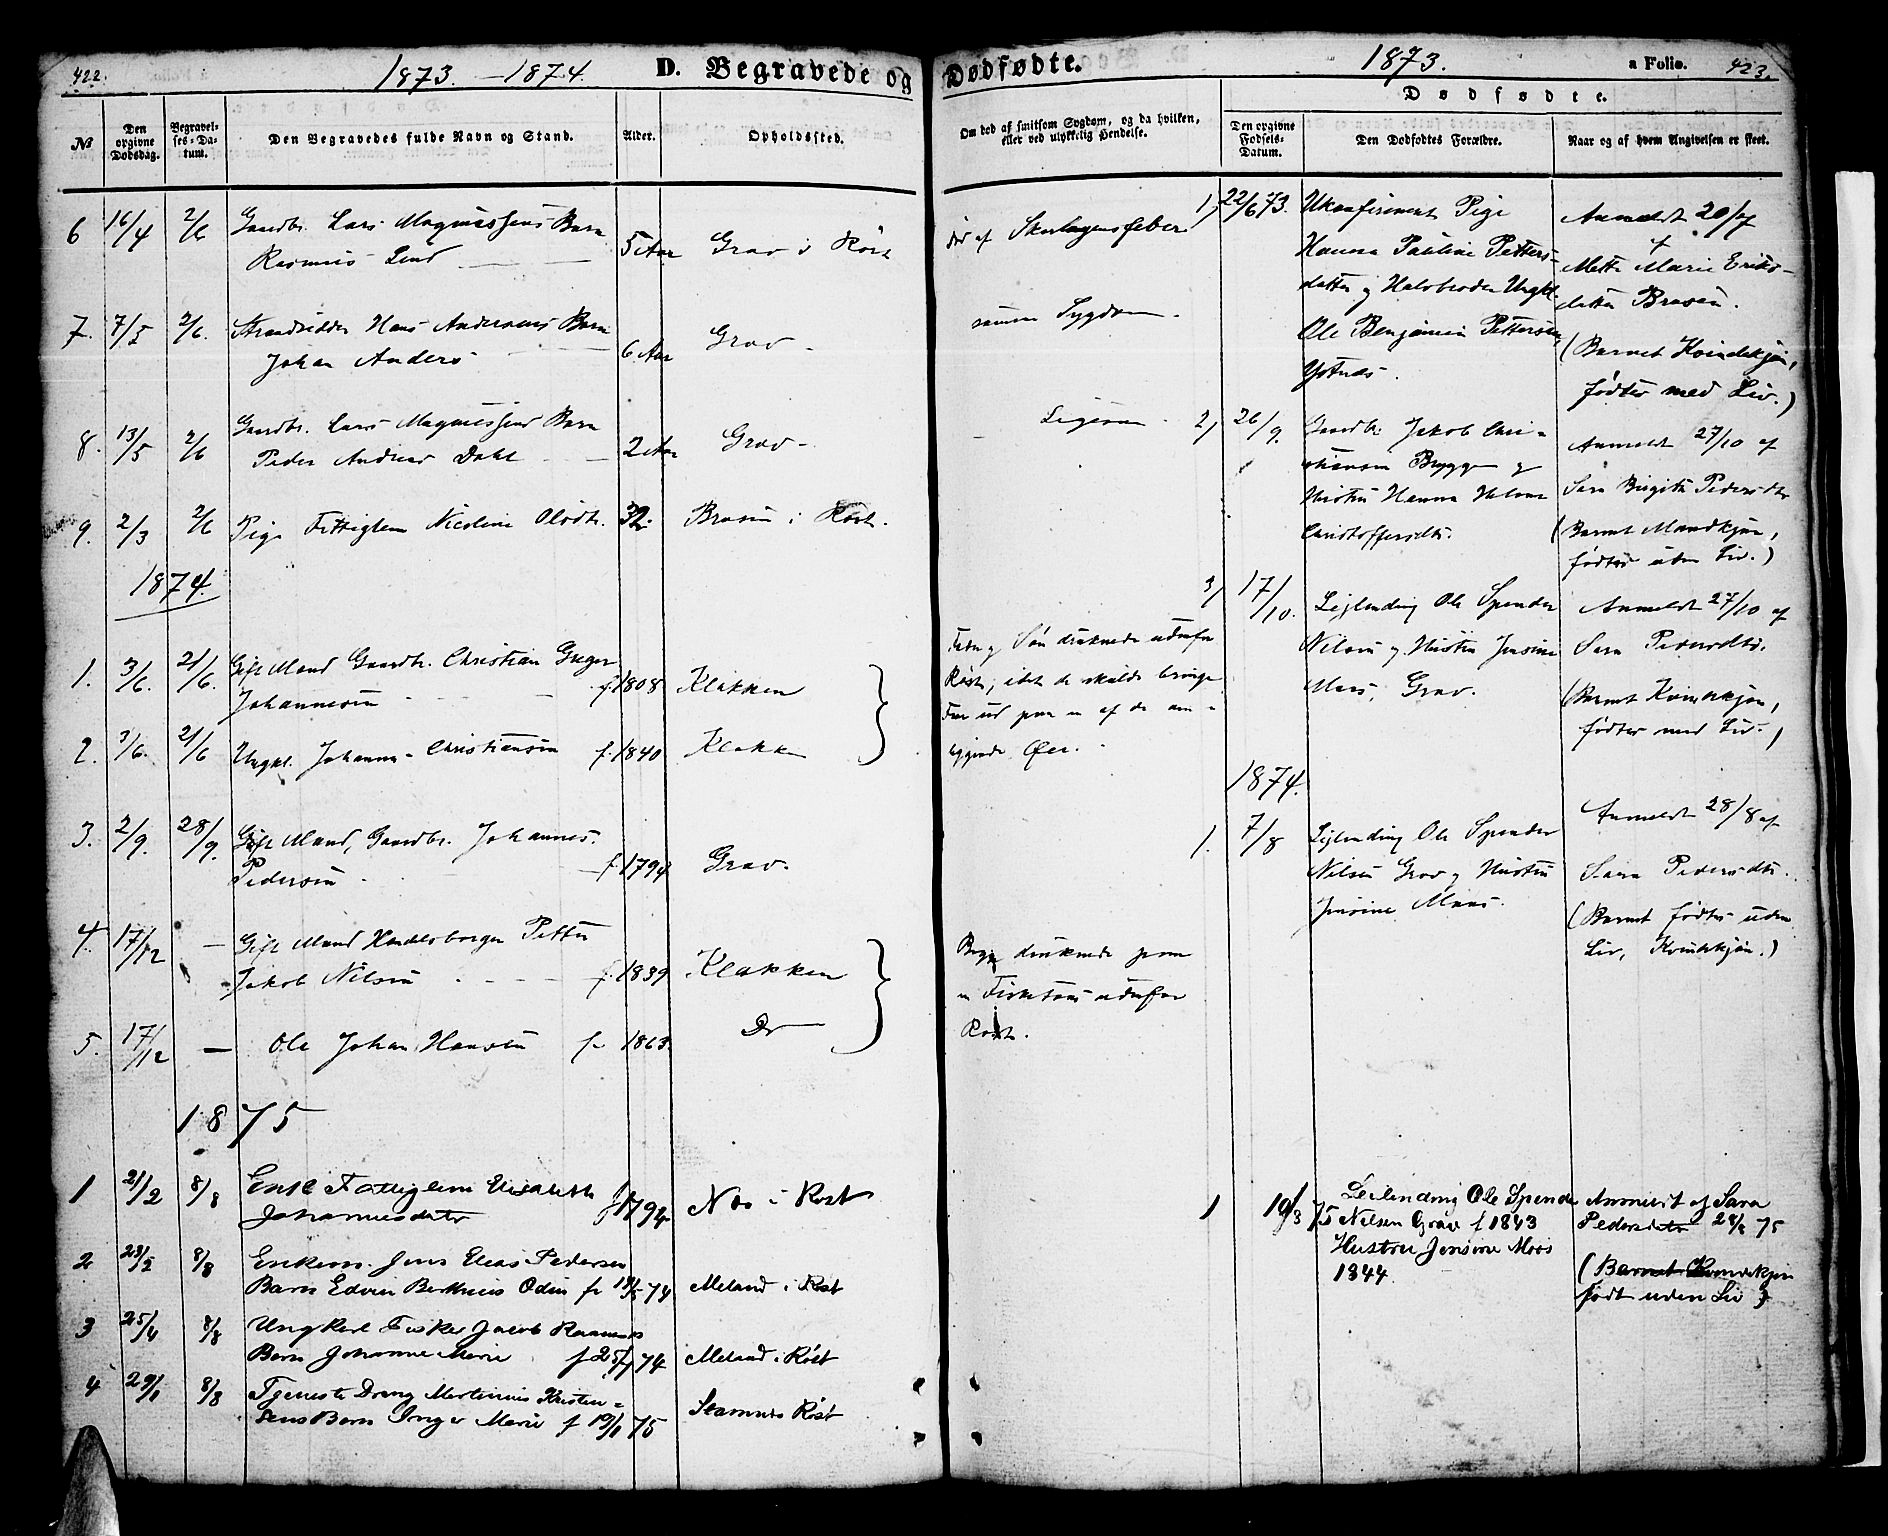 422.
1873. – 1874.
D. Begravede og
№
Den opgivne Dødsdag.
Begravelses-Datum.
Den Begravedes fulde Navn og Stand.
Alder.
Opholdssted.
6 16/4 2/6 Gaardbr. Lars Magnussens Barn
Rasmus Lind 5 Aar Grav i Røst
7. 7/5 2/6. Strandsidder Hans Andersens Barn
Johan Anders 6 Aar Grav –
8. 13/5 2/6 Gaardbr. Lars Magnussens Barn
Peder Andreas Dahl 2 Aar Grav –
9. 2/3 2/6 Pige Fattiglem Nicoline Olsdtr. 32. Brasen i Røst.
1874.
1. 3/6. 21/6. Gift Mand Gaardbr. Christian Greger
Johannesen f. 1808 Klakken
2. 3/6. 21/6 Ungkl. Johannes Christiansen f. 1840 Klakken
3. 2/9. 28/9. Gift Mand, Gaardbr. Johannes
Pedersen f. 1794 Grav.
4. 17/12 – Gift Mand Handelsborger Petter
Jakob Nilsen f. 1839 Klakken
5. 17/12 – Ole Johan Hansen f. 1863. Do
1875
1 21/2 8/8 Enke Fattiglem Elisabeth
Johannesdatr f 1794 Næs i Røst
2 23/2 8/8 Enkem. Jens Elias Pedersen
Barn Edvin Berthinus Odin f 19/5 74 Meland i Røst
3 25/4 8/8 Ungkarl Fisker Jacob Rasmuss
Barn Johanne Marie f 25/7 74 Meland i Røst
4 29/1 8/8 Tjeneste Dreng Martinus Kristen-
sens Barn Inger Marie f 19/1 75 Stamnes Røst
Dødfødte.
1873.
a Folio. 423.
Om død af smitsom Sygdom, og da hvilken,
eller ved ulykkelig Hendelse.
Dødfødte.
Den opgivne Fødsels-Datum.
Den Dødfødtes Forældre.
Naar og af hvem Angivelsen er skeet.
død af Skarlagensfeber
samme Sygdom.
Ligesom.
Fader og Søn druknede udenfor
Røst, idet de skulde bringe
Faar ud paa en af de om-
liggende Øer.
Begge druknede paa
en Fisketour udenfor
Røst.
1, 22/6 73. Ukonfirmeret Pige
Hanna Pauline Petters-
datter og Halvbroder Ungkl.
Ole Benjamin Pettersen
Ystnes.
Anmeldt 20/7 af
Mette Marie Eriks-
datter Brasen.
(Barnet Kvindekjøn,
fødtes med Liv.)
2, 26/9. Gaardbr. Jakob Chri-
stiansen Brygge og
Hustru Hanna Helene
Christoffersdtr.
Anmeldt 27/10 af
Sara Birgitta Pedersdtr
(Barnet Mandkjøn,
fødtes uden Liv.)
3, 17/10. Leilending Ole Spender
Nilsen og Hustru Jensine
Maas, Grav.
Anmeldt 27/10 af
Sara Pedersdtr.
(Barnet Kvindekjøn,
fødtes med Liv.)
1874.
1. 7/8 Leilending Ole Spender
Nilsen Grav og Hustru
Jensine Maas.
Anmeldt 28/8 af
Sara Pedersdtr.
(Barnet fødtes uden
Liv, Kvindekjøn.)
1 19/3 75 Leilending Ole Spender
Nilsen Grav f 1843
Hustru Jensine Moss
1844.
Anmeldt af Sara
Pedersdatr 28/3 75
(Barnet Kvindekjøn
født uden Liv)